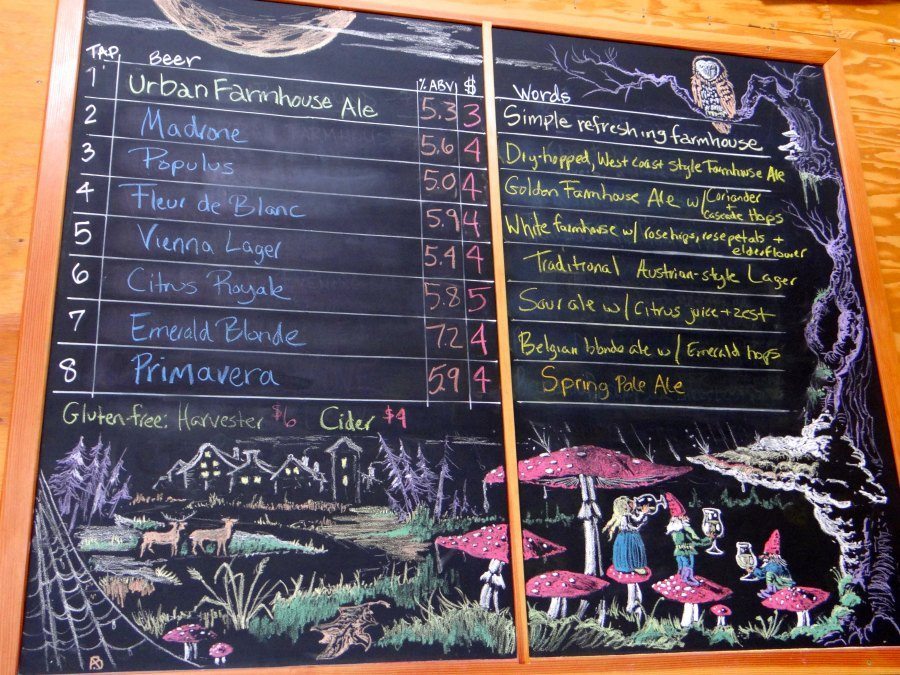 TAP Beer %ABV $ Words
1 Urban Farmhouse Ale 5.3 3 Simple refreshing farmhouse
2 Madrone 5.6 4 Dry-hopped, West coast style Farmhouse Ale
3 Populus 5.0 4 Golden Farmhouse Ale w/ Coriander + Cascade Hops
4 Fleur de Blanc 5.9 4 White farmhouse w/ rosehips, rose petals + elderflower
5 Vienna Lager 5.4 4 Traditional Austrian-style Lager
6 Citrus Royale 5.8 5 Sour ale w/ Citrus juice + zest
7 Emerald Blonde 7.2 4 Belgian blonde ale w/ Emerald hops
8 Primavera 5.9 4 Spring Pale Ale
Gluten-free: Harvester $6 Cider $4